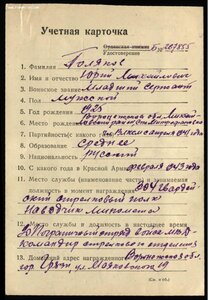 Учетная карточка
Орденская книжка Б № 207855
Удостоверение
1. Фамилия Поляков
2. Имя и отчество Юрий Михайлович
3. Воинское звание Младший сержант
4. Пол мужской
5. Год рождения 1925
6. Место рождения Воронежская обл.
7. Партийность
8. Образование Среднее
9. Национальность русский
10. С какого года в Красной Армии февраля 1943 года
11. Место службы (наименование части) и занимаемая
должность в момент награждения гвардей
ский стрелковый полк
наводчик миномета
12. Место службы и должность в настоящее время
Пограничный отряд войск МВД
командир стрелкового отделения
13. Домашний адрес награжденного Воронежская обл.
ул. Маяковского 19